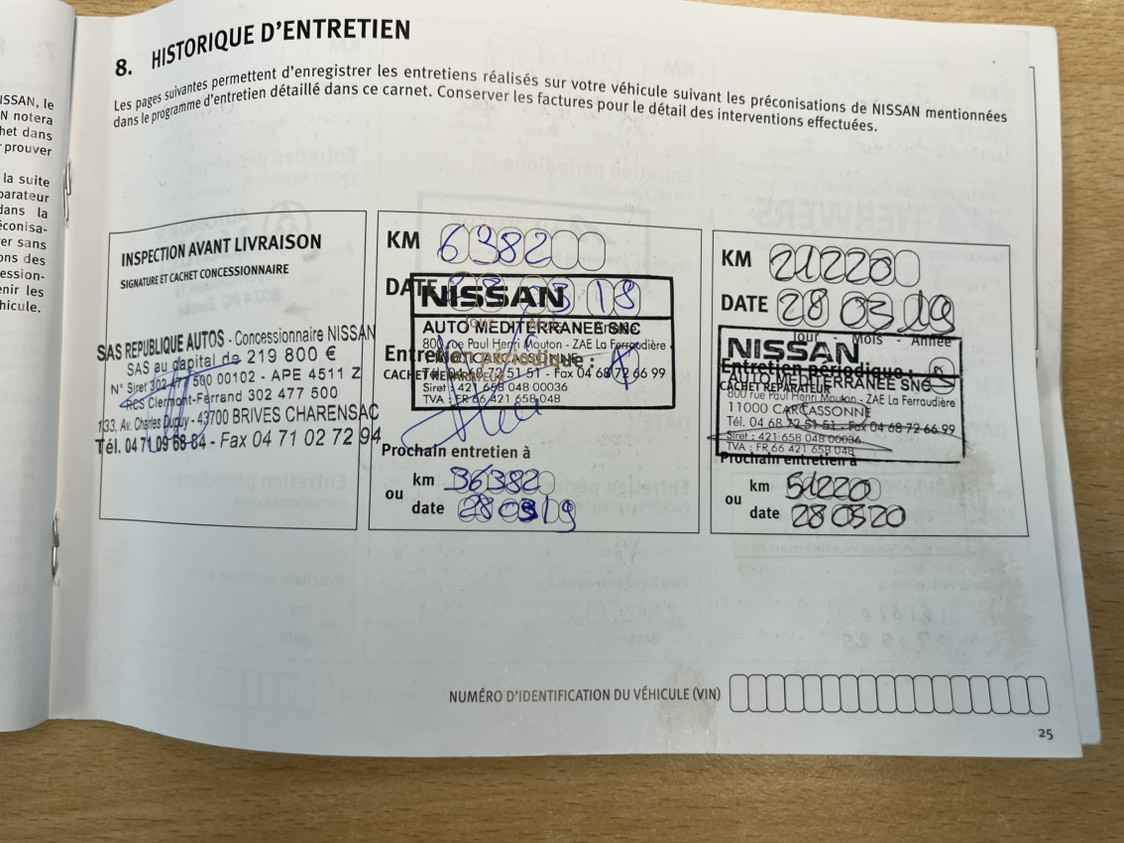 ISSAN, le
N notera
het dans
prouver
la suite
parateur
dans la
éconisa-
er sans
ons des
ession-
enir les
hicule.
8. HISTORIQUE D'ENTRETIEN
Les pages suivantes permettent d'enregistrer les entretiens réalisés sur votre véhicule suivant les préconisations de NISSAN mentionnées
dans le programme d'entretien détaillé dans ce carnet. Conserver les factures pour le détail des interventions effectuées.
INSPECTION AVANT LIVRAISON
SIGNATURE ET CACHET CONCESSIONNAIRE
SAS REPUBLIQUE AUTOS - Concessionnaire NISSAN
SAS au capital de 219 800 €
N° Siret 302 477 500 00102 - APE 4511 Z
RCS Clermont-Ferrand 302 477 500
133, Av. Charles Dupuy - 43700 BRIVES CHARENSAC
Tél. 04 71 09 68 84 - Fax 04 71 02 72 94
KM 6382
DATE 03 18
NISSAN
AUTO MEDITERRANEE SNC
800 rue Paul Henri Mouton - ZAE La Ferraudière
Entretien périodique :
11000 CARCASSONNE
CACHET RÉPARATEUR
Tél. 04 68 72 51 51 - Fax 04 68 72 66 99
Siret : 421 658 048 00036
TVA : FR 66 421 658 048
Prochain entretien à
km 36382
ou
date 28 03 19
KM 21220
DATE 28 03 19
Jour - Mois - Année
NISSAN
Entretien périodique :
AUTO MEDITERRANEE SNC
CACHET RÉPARATEUR
800 rue Paul Henri Mouton - ZAE La Ferraudière
11000 CARCASSONNE
Tél. 04 68 72 51 51 - Fax 04 68 72 66 99
Siret : 421 658 048 00036
TVA : FR 66 421 658 048
Prochain entretien à
km 51220
ou
date 28 03 20
NUMÉRO D'IDENTIFICATION DU VÉHICULE (VIN)
25